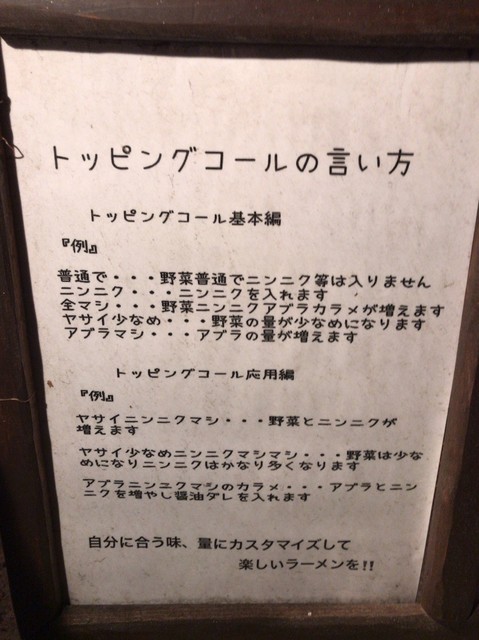 トッピングコールの言い方
トッピングコール基本編
『例』
普通で・・・野菜普通でニンニク等は入りません
ニンニク・・・ニンニクを入れます
全マシ・・・野菜ニンニクアブラカラメが増えます
ヤサイ少なめ・・・野菜の量が少なめになります
アブラマシ・・・アブラの量が増えます
トッピングコール応用編
『例』
ヤサイニンニクマシ・・・野菜とニンニクが
増えます
ヤサイ少なめニンニクマシマシ・・・野菜は少な
めになりニンニクはかなり多くなります
アブラニンニクマシのカラメ・・・アブラとニン
ニクを増やし醤油ダレを入れます
自分に合う味、量にカスタマイズして
楽しいラーメンを!!